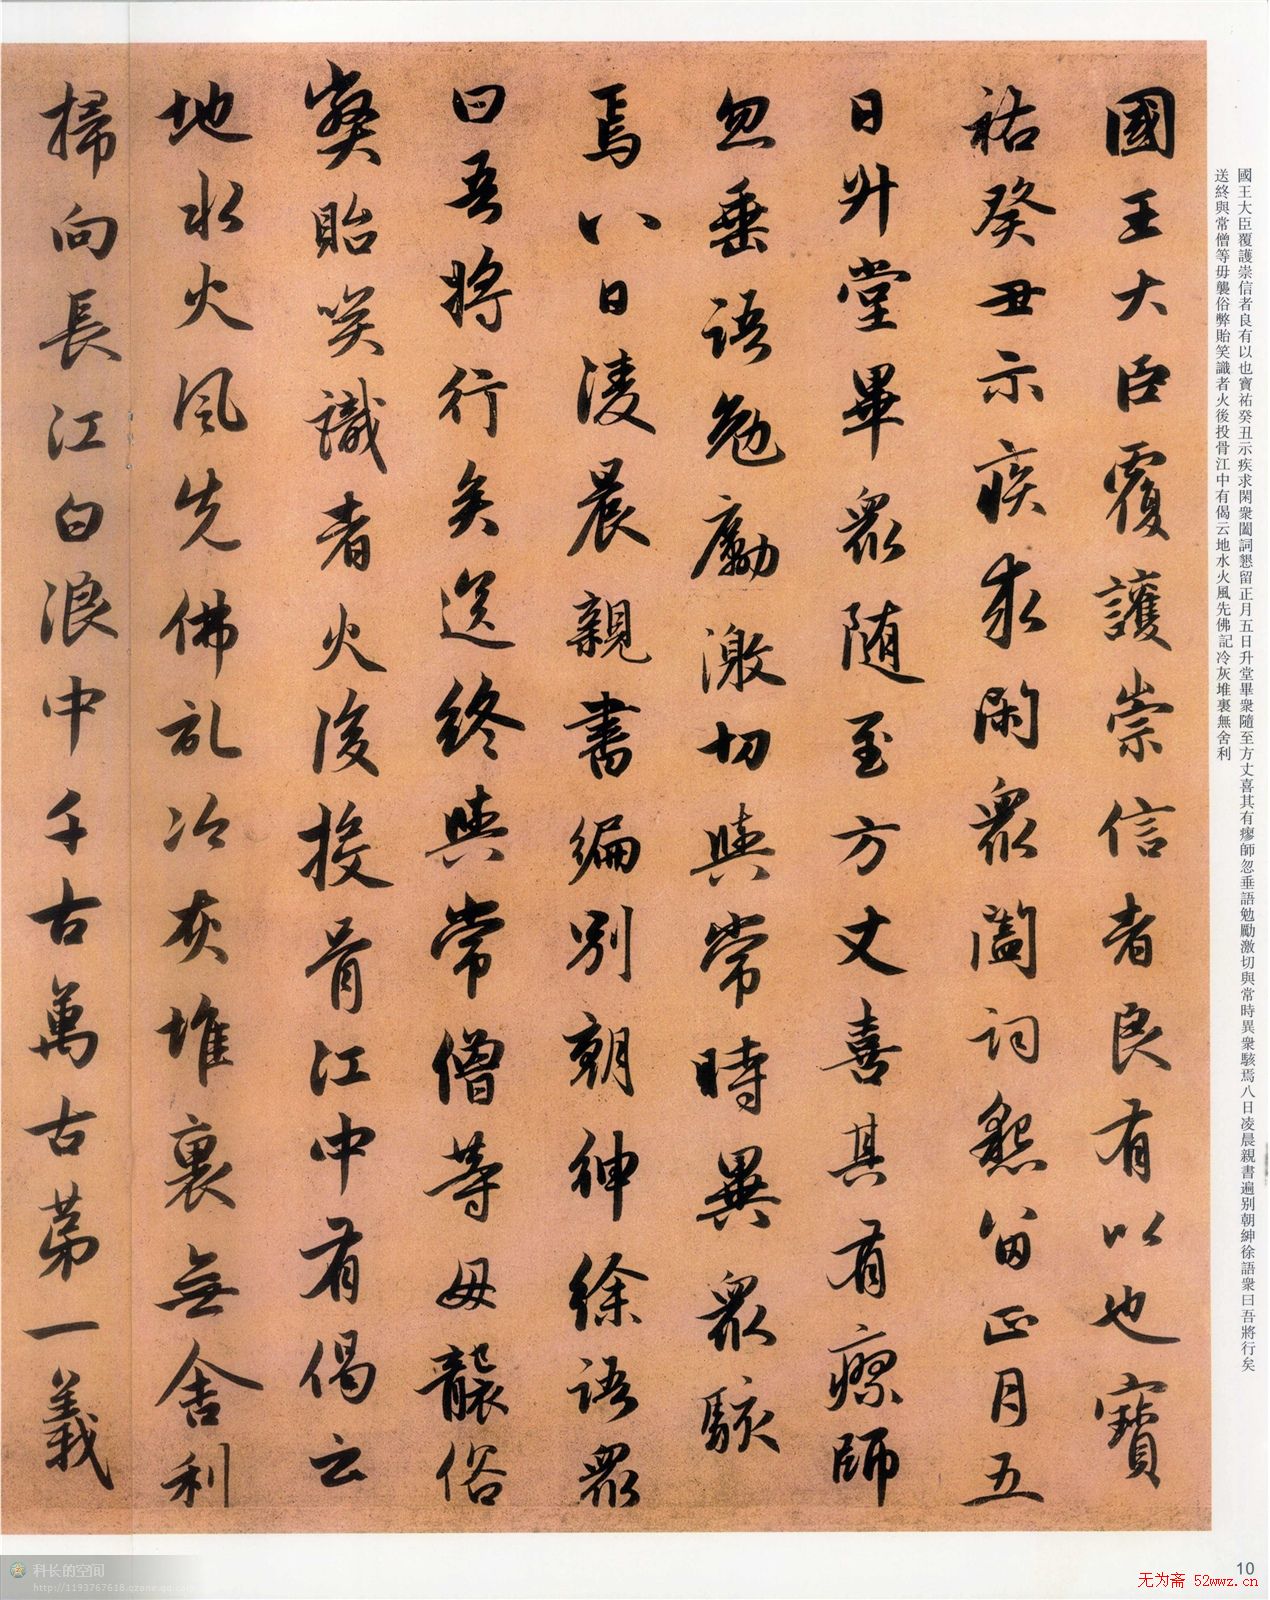 國王大臣覆護崇信者良有以也寶
祐癸丑示疾求閑衆闔詞懇留正月五
日升堂畢衆随至方丈喜其有瘳師
忽垂語勉勵激切與常時異衆駭
焉八日淩晨親書徧別朝紳徐語衆
曰吾將行矣送終與常僧等毋襲俗
弊貽笑識者火後投骨江中有偈云
地水火風先佛記冷灰堆裏無舍利
掃向長江白浪中千古萬古第一義
國王大臣覆護崇信者良有以也寶祐癸丑示疾求閑衆闔詞懇留正月五日升堂畢衆隨至方丈喜其有瘳師忽垂語勉勵激切與常時異衆駭焉八日凌晨親書遍別朝紳徐語衆曰吾將行矣
送終與常僧等毋襲俗弊貽笑識者火後投骨江中有偈云地水火風先佛記冷灰堆裏無舍利
科长的空间
http://1193767618.qzone.qq.com
10
无为斋 52wwz.cn